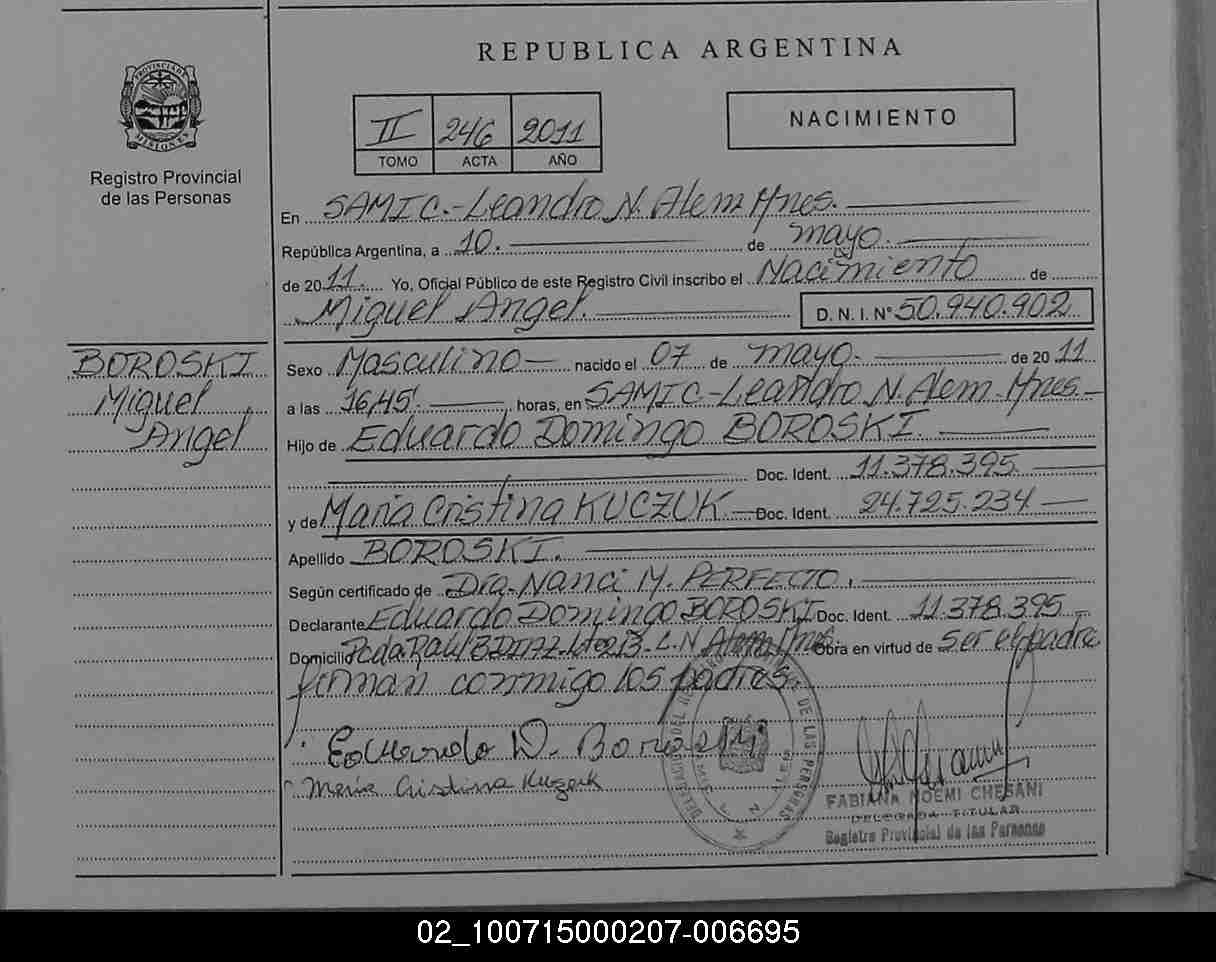 PROVINCIA DE MISIONES
Registro Provincial
de las Personas
REPUBLICA ARGENTINA
II 246 2011
TOMO ACTA AÑO
NACIMIENTO
En SAMIC.-Leandro N. Alem Mnes.
República Argentina, a 10. de mayo.
de 2011. Yo, Oficial Público de este Registro Civil inscribo el Nacimiento de
Miguel Angel. D. N. I. Nº 50.940.902
BOROSKI
Miguel
Angel
Sexo Masculino nacido el 07 de mayo. de 2011
a las 16,45'. horas, en SAMIC-Leandro N. Alem. Mnes.
Hijo de Eduardo Domingo BOROSKI.
Doc. Ident. 11.378.395
y de Maria Cristina KUCZUK Doc. Ident. 24.725.234
Apellido BOROSKI.
Según certificado de Dra. Nanci M. PERFECTO,
Declarante Eduardo Domingo BOROSKI Doc. Ident. 11.378.395
Domicilio Pcda. DIAZ L. N. Alem Mnes. Obra en virtud de ser el padre
firman conmigo los padres
Eduardo D. Boroski
Maria Cristina Kuczuk
DE LAS PERSONAS
FABIANA NOEMI CHESANI
DELEGADA TITULAR
Registro Provincial de las Personas
02_100715000207-006695